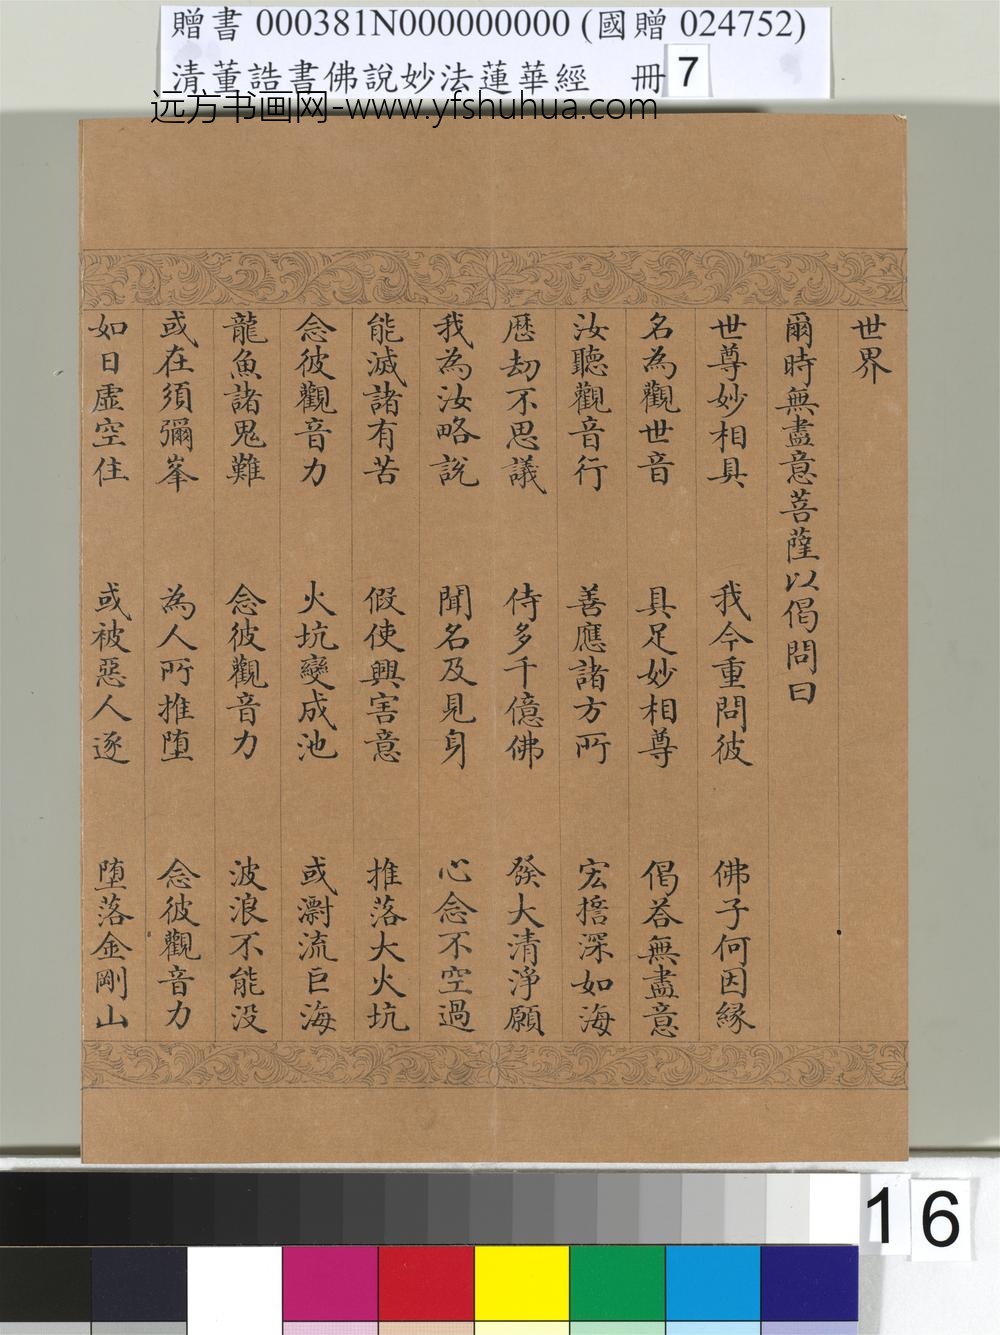 贈書 000381N000000000 (國贈 024752)
清董誥書佛說妙法蓮華經 冊 7
远方书画网-www.yfshuhua.com
世界
爾時無盡意菩薩以偈問曰
世尊妙相具 我今重問彼 佛子何因縁
名為觀世音 具足妙相尊 偈荅無盡意
汝聽觀音行 善應諸方所 宏誓深如海
歷劫不思議 侍多千億佛 發大清淨願
我為汝略說 聞名及見身 心念不空過
能滅諸有苦 假使興害意 推落大火坑
念彼觀音力 火坑變成池 或漂流巨海
龍魚諸鬼難 念彼觀音力 波浪不能没
或在須彌峯 為人所推堕 念彼觀音力
如日虛空住 或被惡人逐 堕落金剛山
16